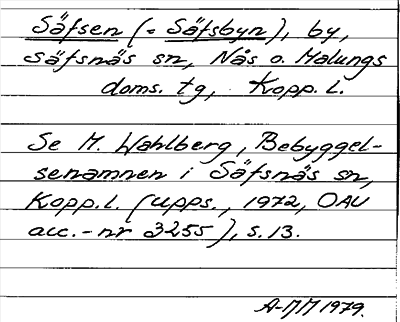 Säfsen (= Säfsbyn), by,
Säfsnäs sn, Nås o. Malungs
doms. tg, Kopp. l.
Se M. Wahlberg, Bebyggel-
senamnen i Säfsnäs sn,
Kopp. l. (Upps., 1972, OAU
acc.-nr 3255), s. 13.
A-MM 1979.